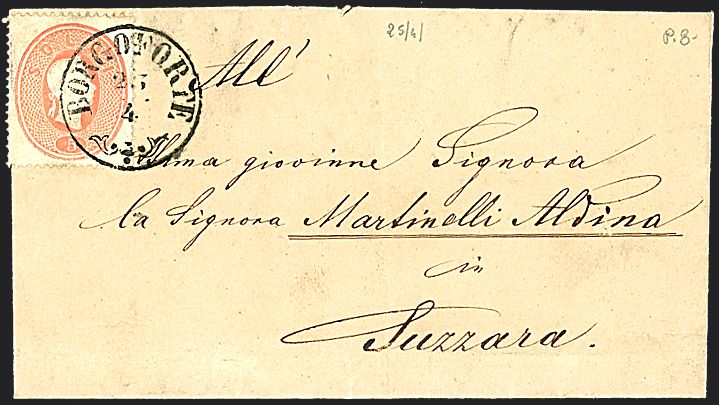 25/4/
P. B-
SOLDI
5
BORGOFORTE
25
4
All'
Illma giovinne Signora
la Signora Martinelli Aldina
in
Suzzara.